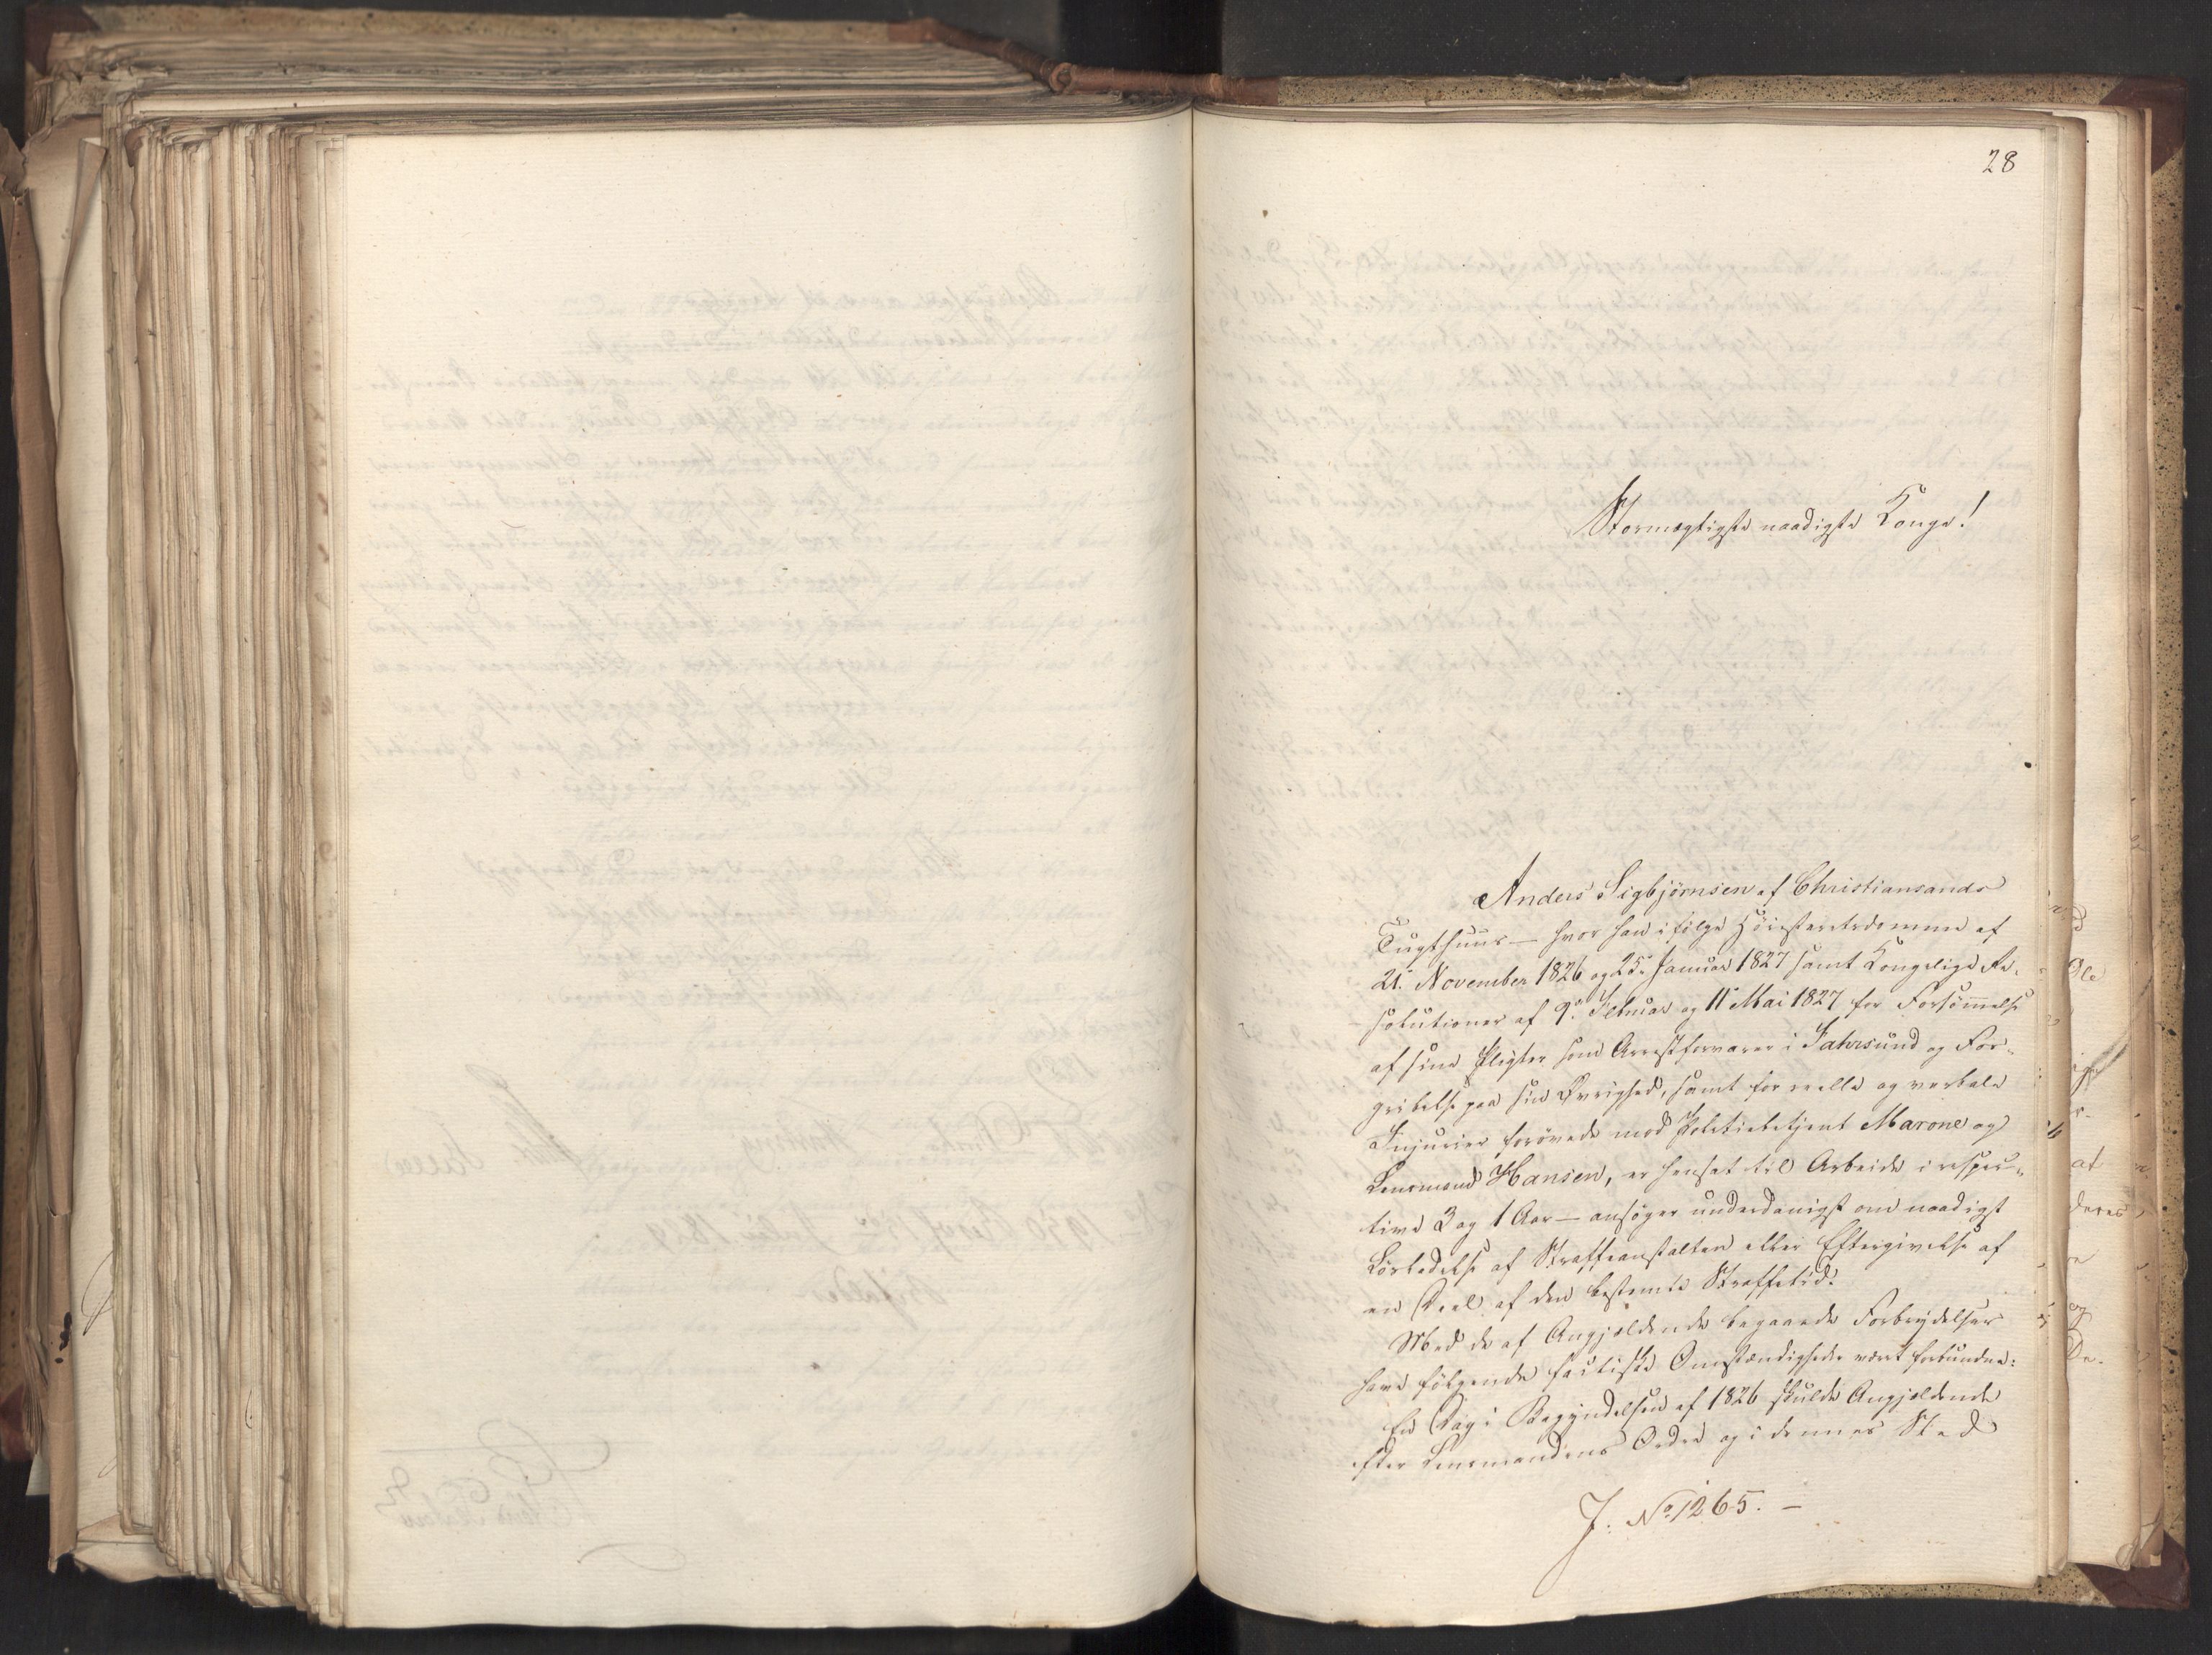 28
Stormægtigste naadigste Konge!
Anders Sigbjörnsen af Christiansands
Tugthuus — hvor han ifölge Höiesteretsdomme af
21. November 1826 og 25. Januar 1827 samt Kongelige Re-
solutioner af 9. Februar og 11 Mai 1827 for Forsömmelse
af sine Pligter som Arrestforvarer i Fahrsund og For-
gribelse paa sin Övrighed, samt for reelle og verbale
Injurier forövede mod Politiebetjent Marone og
Lensmand Hansen, er hensat til Arbeide i respec-
tive 3 og 1 Aar — ansöger underdanigst om naadigst
Lösladelse af Straffeanstalten eller Eftergivelse af
en Deel af den bestemte Straffetid.
Med de af Angjældende begaaede Forbrydelser
have fölgende factiske Omstændigheder været forbundne:
En Dag i Begyndelsen af 1826 skulde Angjældende
efter Lensmandens Ordre og i dennes Sted
J. No 1265. —